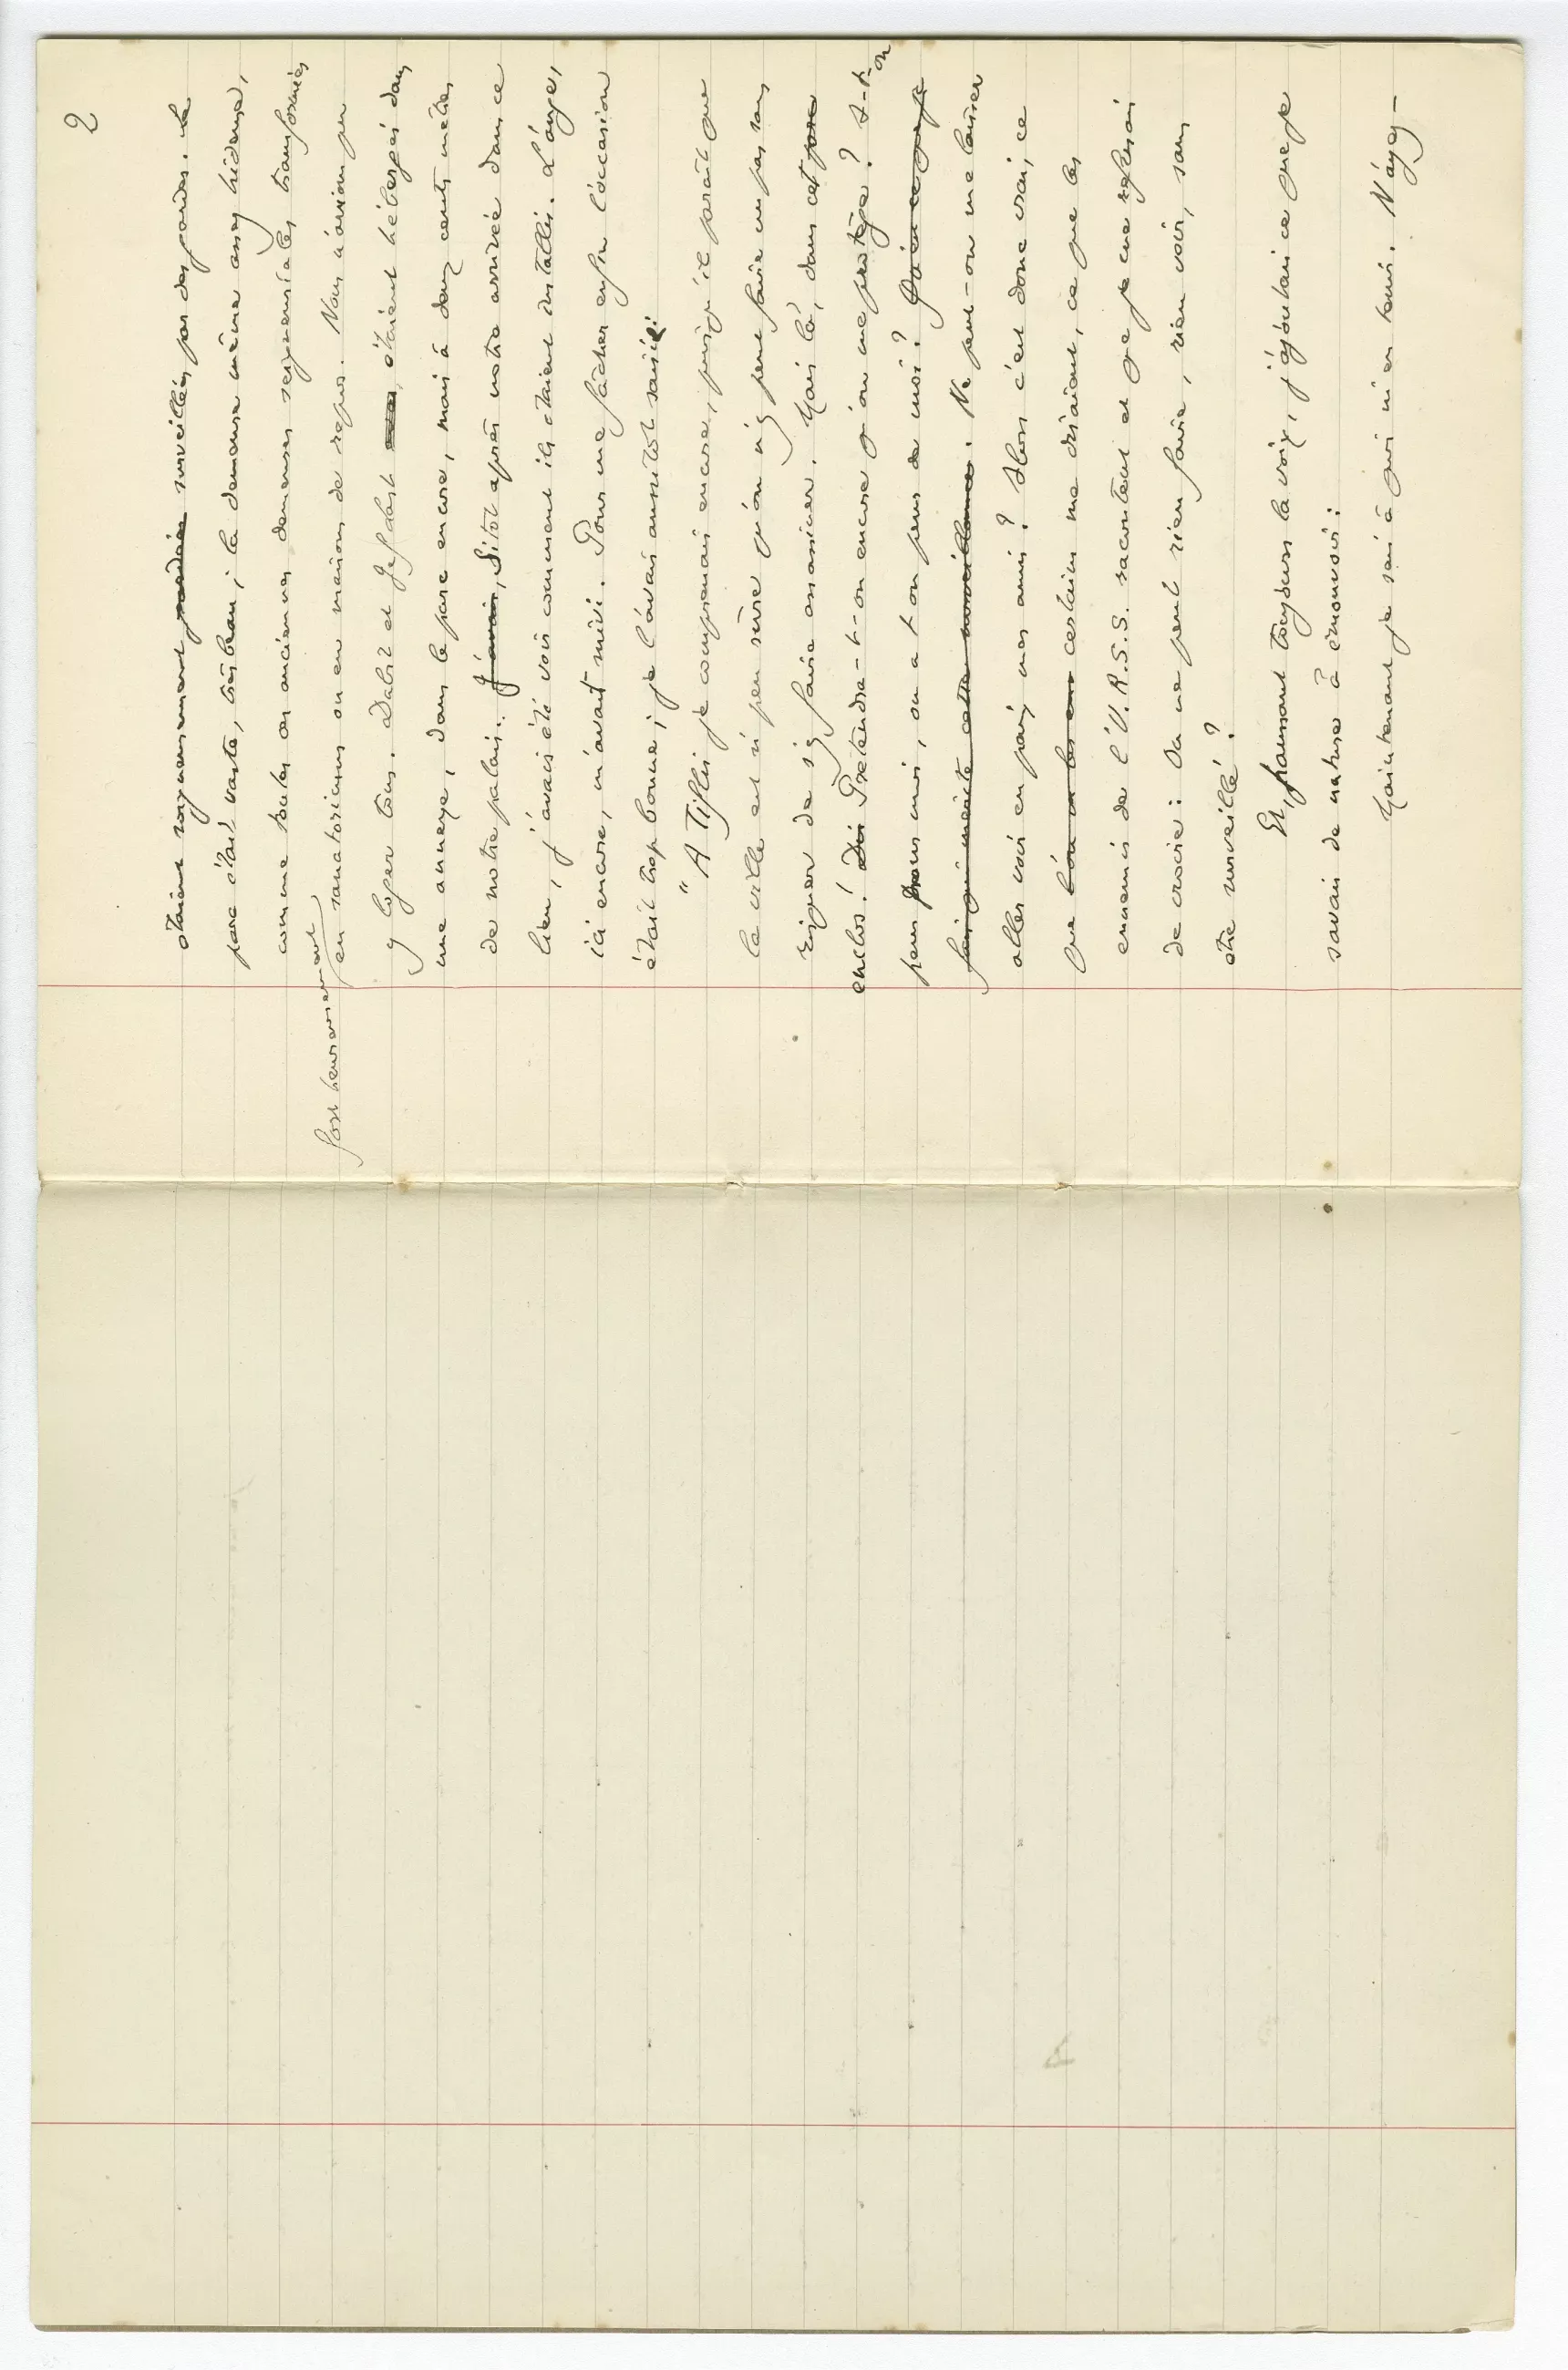 2
étaient soigneusement gardées surveillées par des gardes. Le
parc était vaste, très beau ; la demeure même assez hideuse,
comme toutes ces anciennes demeures seigneuriales transformées
fort heureusement
en sanatoriums ou en maisons de repos. Nous n'avions pu
y loger tous. Dabit et Jef Last étaient hébergés dans
une annexe, dans le parc encore, mais à deux cents mètres
de notre palais. J'avais, Sitôt après notre arrivée dans ce
lieu, j'avais été voir comment ils étaient installés. L'ange,
ici encore, m'avait suivi. Pour me fâcher enfin l'occasion
était trop bonne ; je l'avais aussitôt saisie :
"A Tiflis je comprenais encore, puisqu'il paraît que
la ville est si peu sûre qu'on n'y peut faire un pas sans
risquer de s'y faire assassiner. Mais là, dans cet parc
enclos ! Prétendra-t-on encore qu'on me protège ? A-t-on
peur pour moi, ou a t on peur de moi ? Qu'ai-ce que je
fais qui mérite cette surveillance. Ne peut-on me laisser
aller voir en paix mes amis ? Alors c'est donc vrai, ce
que l'on certains me disaient, ce que les
ennemis de l'U.R.S.S. racontent et que je me refusais
de croire : On ne peut rien faire, rien voir, sans
être surveillé ?
Et, haussant toujours la voix, j'ajoutais ce que je
savais de nature à émouvoir :
Maintenant je sais à quoi m'en tenir. N'ayez